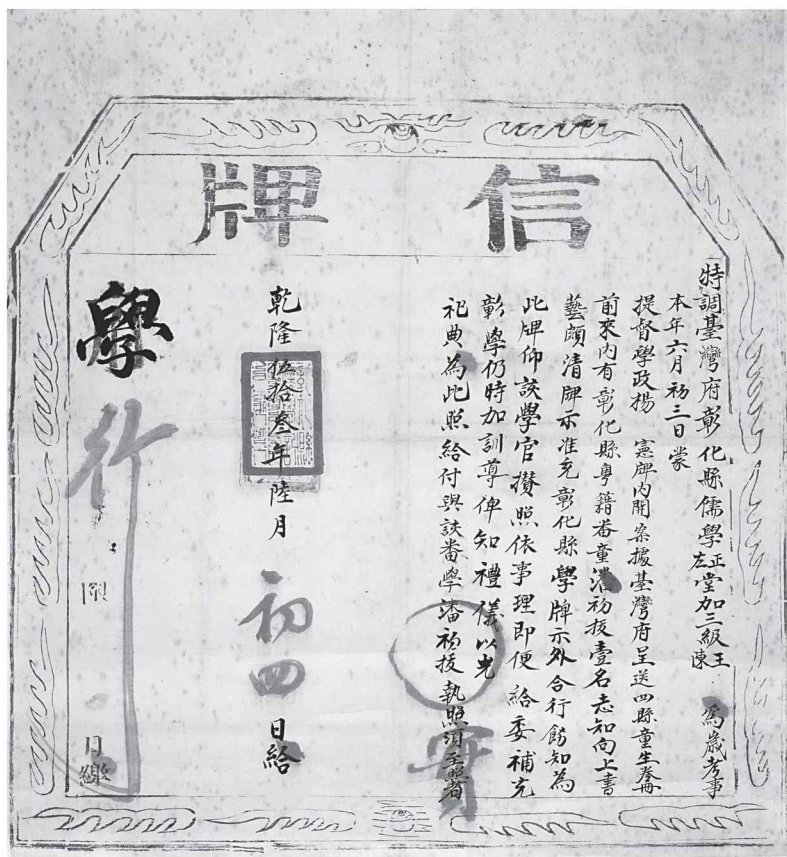 信牌
特調臺灣府彰化縣儒學正左堂加三級王陳 為歲考事
本年六月初三日蒙
提督學政楊 憲牌內開案據臺灣府呈送四縣童生拳冊
前來內有彰化縣粵籍番童潘初拔壹名志知向上書
藝頗清牌示准充彰化縣學牌示外合行飭知為
此牌仰該學官攢照依事理即便給委補充
彰學仍時加訓導俾知禮儀以光
祀典為此照給付與該番學潘初拔執照須至照者
實
乾隆伍拾叁年陸月初四日給
學
行
限 日繳